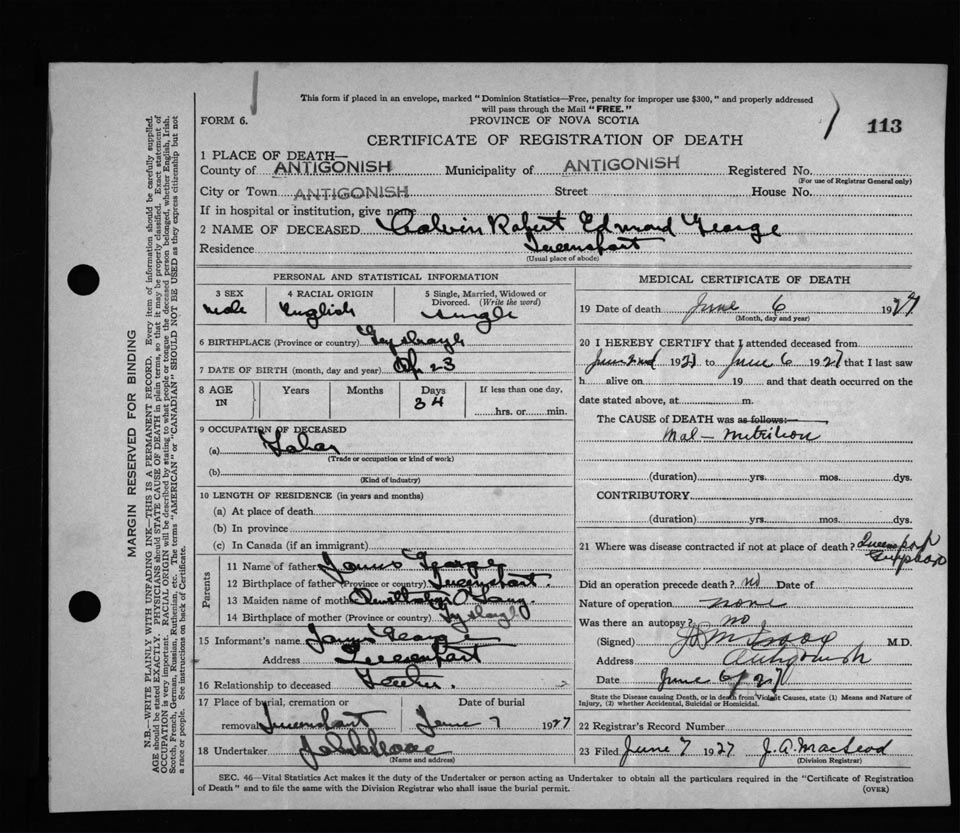 This form if placed in an envelope, marked "Dominion Statistics—Free, penalty for improper use $300," and properly addressed
will pass through the Mail "FREE."
FORM 6.
PROVINCE OF NOVA SCOTIA
113
CERTIFICATE OF REGISTRATION OF DEATH
1 PLACE OF DEATH—
County of ANTIGONISH Municipality of ANTIGONISH Registered No.
(For use of Registrar General only)
City or Town ANTIGONISH Street House No.
If in hospital or institution, give name
2 NAME OF DECEASED Calvin Robert Edward George
Residence Queensport
(Usual place of abode)
PERSONAL AND STATISTICAL INFORMATION
3 SEX 4 RACIAL ORIGIN 5 Single, Married, Widowed or
Divorced. (Write the word)
Male English Single
6 BIRTHPLACE (Province or country)
7 DATE OF BIRTH (month, day and year) 23
8 AGE IN Years Months Days If less than one day,
34
hrs. or min.
9 OCCUPATION OF DECEASED
(a)
(Trade or occupation or kind of work)
(b)
(Kind of industry)
10 LENGTH OF RESIDENCE (in years and months)
(a) At place of death
(b) In province
(c) In Canada (if an immigrant)
Parents
11 Name of father James George
12 Birthplace of father (Province or country) Queensport
13 Maiden name of mother
14 Birthplace of mother (Province or country)
15 Informant's name James George
Address Queensport
16 Relationship to deceased Father.
17 Place of burial, cremation or Date of burial
removal Queensport June 7 1927
18 Undertaker
(Name and address)
MEDICAL CERTIFICATE OF DEATH
19 Date of death June 6 1927
(Month, day and year)
20 I HEREBY CERTIFY that I attended deceased from
June 2nd 1927 to June 6 1927 that I last saw
h alive on 19 and that death occurred on the
date stated above, at m.
The CAUSE of DEATH was as follows:—
Mal-nutrition
(duration) yrs. mos. dys.
CONTRIBUTORY
(duration) yrs. mos. dys.
21 Where was disease contracted if not at place of death? Queensport
Did an operation precede death? no Date of
Nature of operation none
Was there an autopsy? no
(Signed) M.D.
Address Antigonish
Date June 6/27
State the Disease causing Death, or in death from Violent Causes, state (1) Means and Nature of
Injury, (2) whether Accidental, Suicidal or Homicidal.
22 Registrar's Record Number
23 Filed June 7 1927 J. A. MacLeod
(Division Registrar)
SEC. 46—Vital Statistics Act makes it the duty of the Undertaker or person acting as Undertaker to obtain all the particulars required in the "Certificate of Registration
of Death" and to file the same with the Division Registrar who shall issue the burial permit.
(OVER)
MARGIN RESERVED FOR BINDING
N.B.—WRITE PLAINLY WITH UNFADING INK—THIS IS A PERMANENT RECORD. Every item of information should be carefully supplied.
AGE should be stated EXACTLY. PHYSICIANS should STATE CAUSE OF DEATH in plain terms, so that it may be properly classified. Exact statement of
OCCUPATION is very important. RACIAL ORIGIN will be described by stating to what people or tongue the deceased person belonged, whether English, Irish,
Scotch, French, German, Russian, Ruthenian, etc. The terms "AMERICAN" or "CANADIAN" SHOULD NOT BE USED as they express citizenship but not
a race or people. See instructions on back of Certificate.